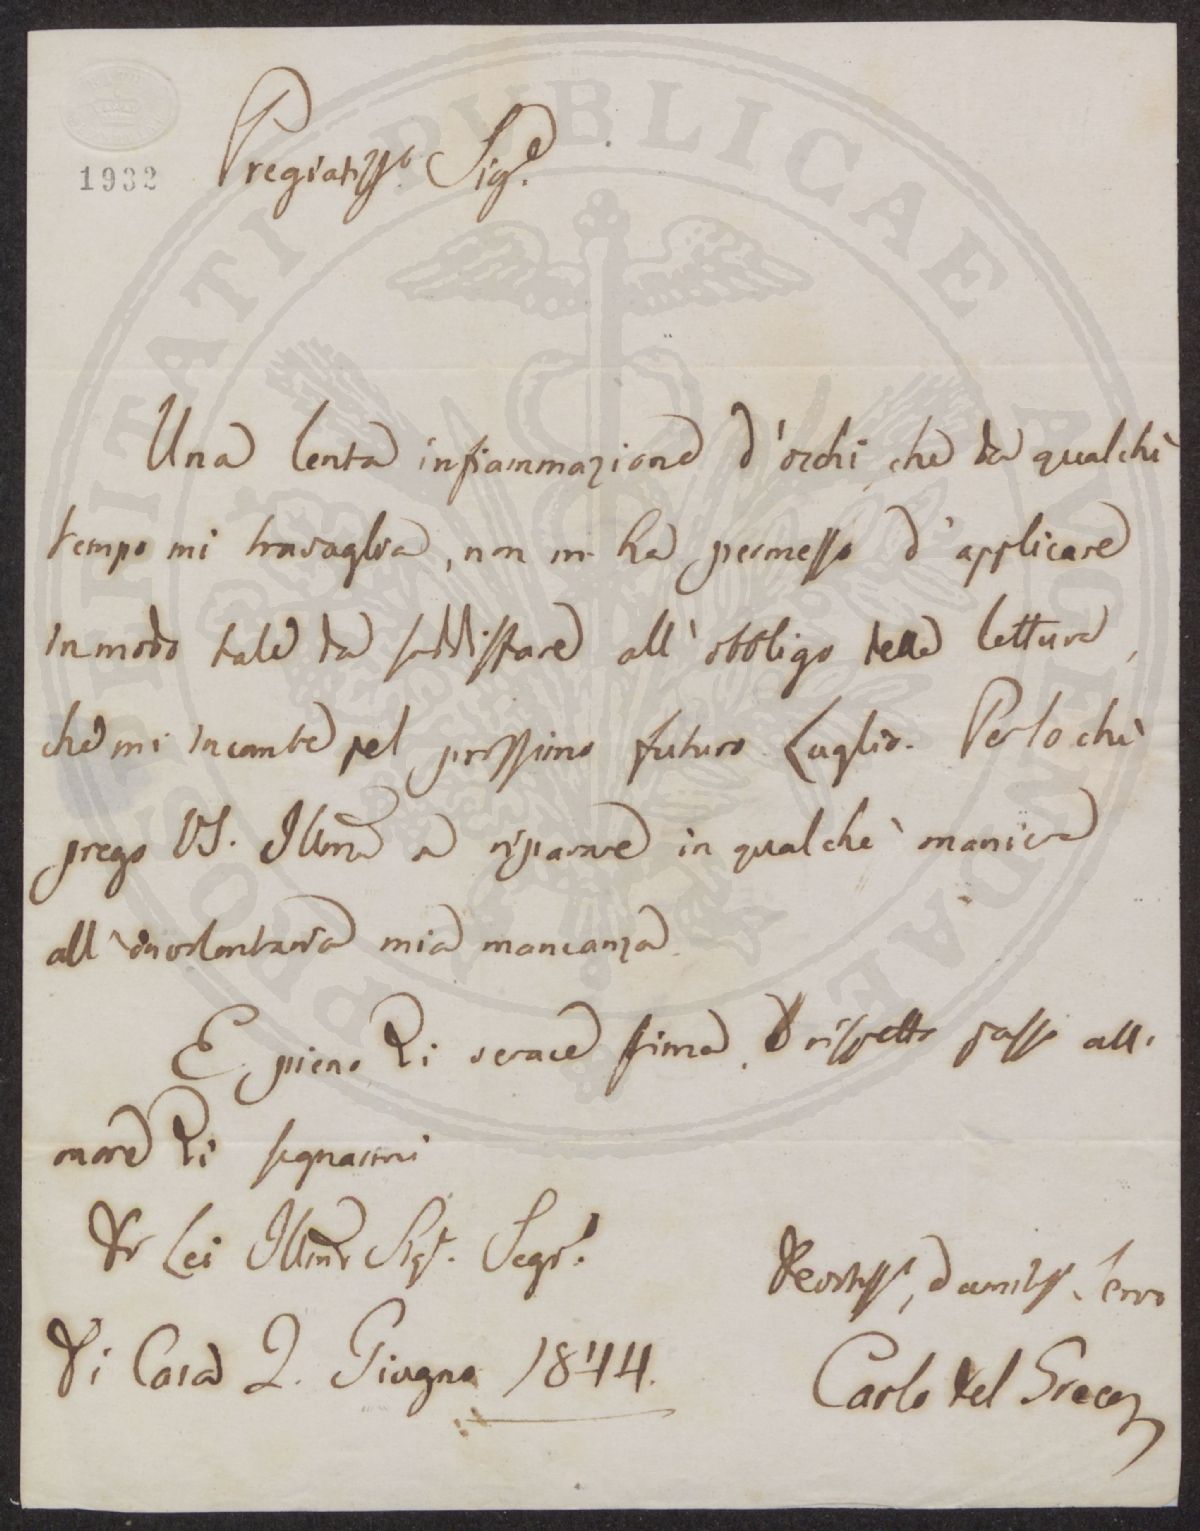 1932
Pregiatiss.o Sig.e
Una lenta infiammazione d'occhi, che da qualche
tempo mi travaglia, non m'ha permesso d'applicare
in modo tale da soddisfare all'obbligo della lettura,
che mi incombe pel prossimo futuro Luglio. Perlochè
prego VS. Illma a riparare in qualche maniera
all'involontaria mia mancanza.
E pieno di verace stima, e rispetto passo all'
onore di segnarmi
Di Lei Illmo Sig.r Segr.o
Devotiss.o, ed umiliss. servo
Di Casa 2. Giugno 1844.
Carlo del Greco
PROSPERITATI PUBLICAE AUGENDAE